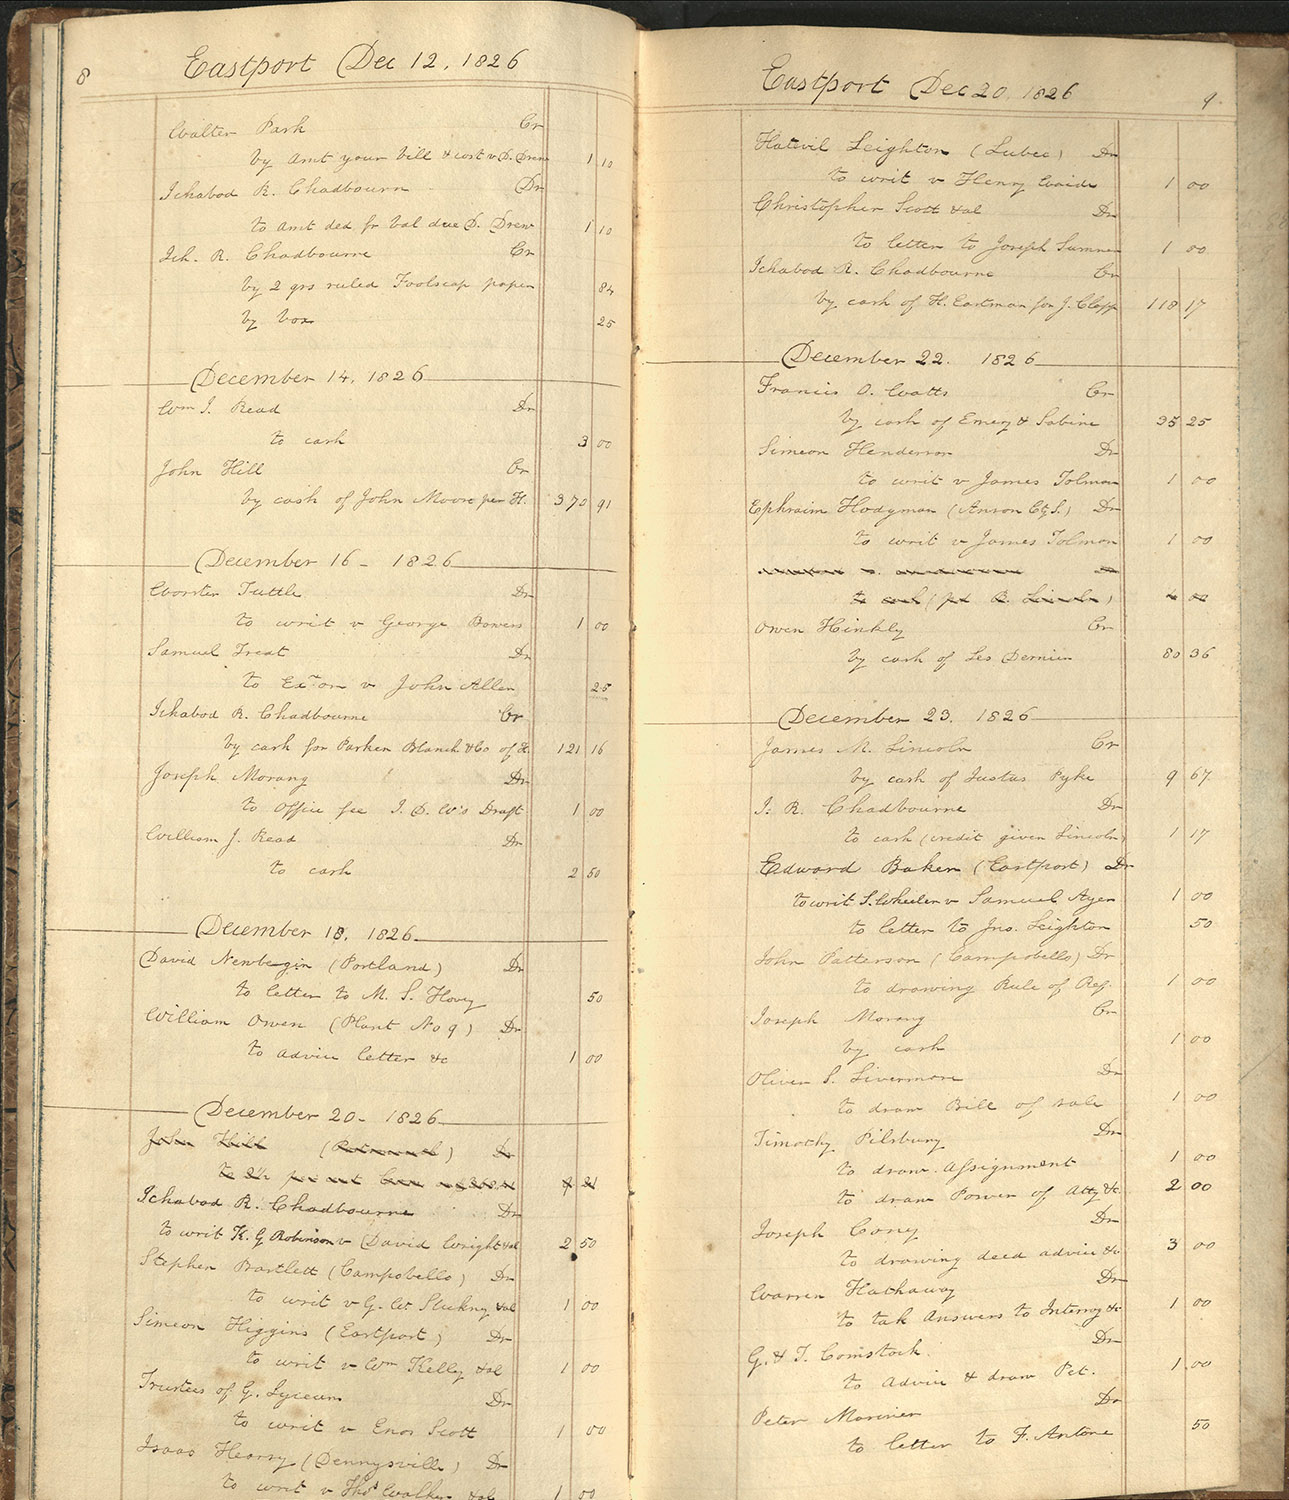 8
Eastport Dec 12, 1826
Walter Park Cr
by amt your bill & cost v D. Drew 1 10
Ichabod R. Chadbourn Dr
to amt ded. fr bal due D. Drew 1 10
Ich. R. Chadbourne Cr
by 2 qrs ruled Foolscap paper 84
by box 25
December 14, 1826
Wm J. Read Dr
to cash 3 00
John Hill Cr
by cash of John Moore per H. 370 91
December 16 - 1826
Worster Tuttle Dr
to writ v George Bowers 1 00
Samuel Treat Dr
to Exon v John Allen 25
Ichabod R. Chadbourne Cr
by cash for Parker Blanch & Co of H. 121 16
Joseph Morang Dr
to office fee I. D. W's Draft 1 00
William J. Read Dr
to cash 2 50
December 18, 1826
David Newbegin (Portland) Dr
to letter to M. S. Hovey 50
William Owen (Plant No 9) Dr
to advice letter &c 1 00
December 20 - 1826
John Hill Dr
to 2½ per cent
Ichabod R. Chadbourne Dr
to writ K. G Robinson v (David Wright & al 2 50
Stephen Bartlett (Campobello) Dr
to writ v G. W. &al 1 00
Simeon Higgins (Eastport) Dr
to writ v Wm Kelly &al 1 00
Trustees of G. Lyceum Dr
to writ v Enos Scott 1 00
Isaac Hearsy (Dennysville) Dr
to writ v Thos Walker &al 1 00
Eastport Dec 20, 1826
9
Hatevil Leighton (Lubec) Dr
to writ v Henry Waide 1 00
Christopher Scott &al Dr
to letter to Joseph Sumner 1 00
Ichabod R. Chadbourne Cr
by cash of H. Eastman for J. Clapp 118 17
December 22. 1826
Francis O. Watts Cr
by cash of Emery & Sabine 35 25
Simeon Henderson Dr
to writ v James Tolman 1 00
Ephraim Hodgman (Anson Ct S.) Dr
to writ v James Tolman 1 00
to cash (pd R. Lincoln)
Owen Hinkly Cr
by cash of Les Dernier 80 36
December 23. 1826
James M. Lincoln Cr
by cash of Justus Pyke 9 67
I. R. Chadbourne Dr
to cash (credit given Lincoln) 1 17
Edward Baker (Eastport) Dr
to writ S. Wheeler v Samuel Ayer 1 00
to letter to Jno. Leighton 50
John Patterson (Campobello) Dr
to drawing Rule of Ref. 1 00
Joseph Morang Cr
by cash 1 00
Oliver S. Livermore Dr
to draw Bill of sale 1 00
Timothy Pilsbury Dr
to draw. Assignment 1 00
to draw Power of Atty &c. 2 00
Joseph Cony Dr
to drawing deed advice &c 3 00
Warren Hathaway Dr
to tak Answers to Interrog &c 1 00
G. & T. Comstock. Dr
to advice & draw Pet. 1.00
Peter Mariner Dr
to letter to F. Antone 50